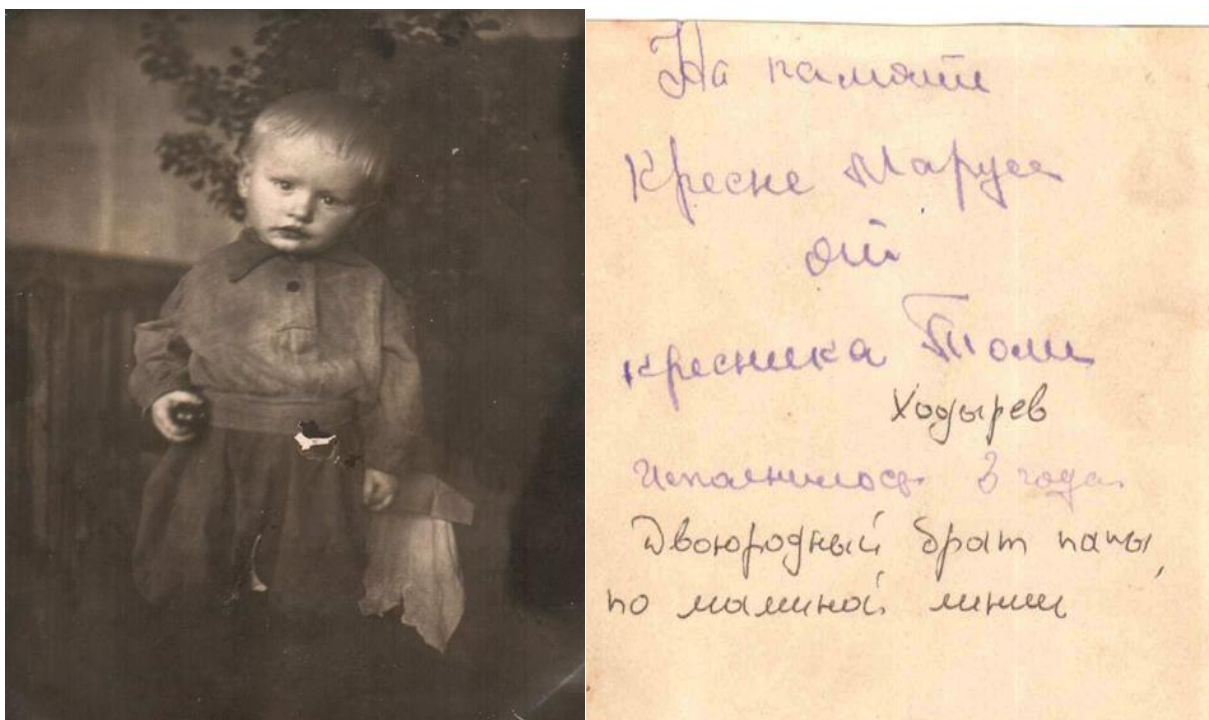 На памяти
Кресне Марусе
от
кресника Толи
Ходырев
Исполнилось 3 года
Двоюродный брат папы,
по маминой линии